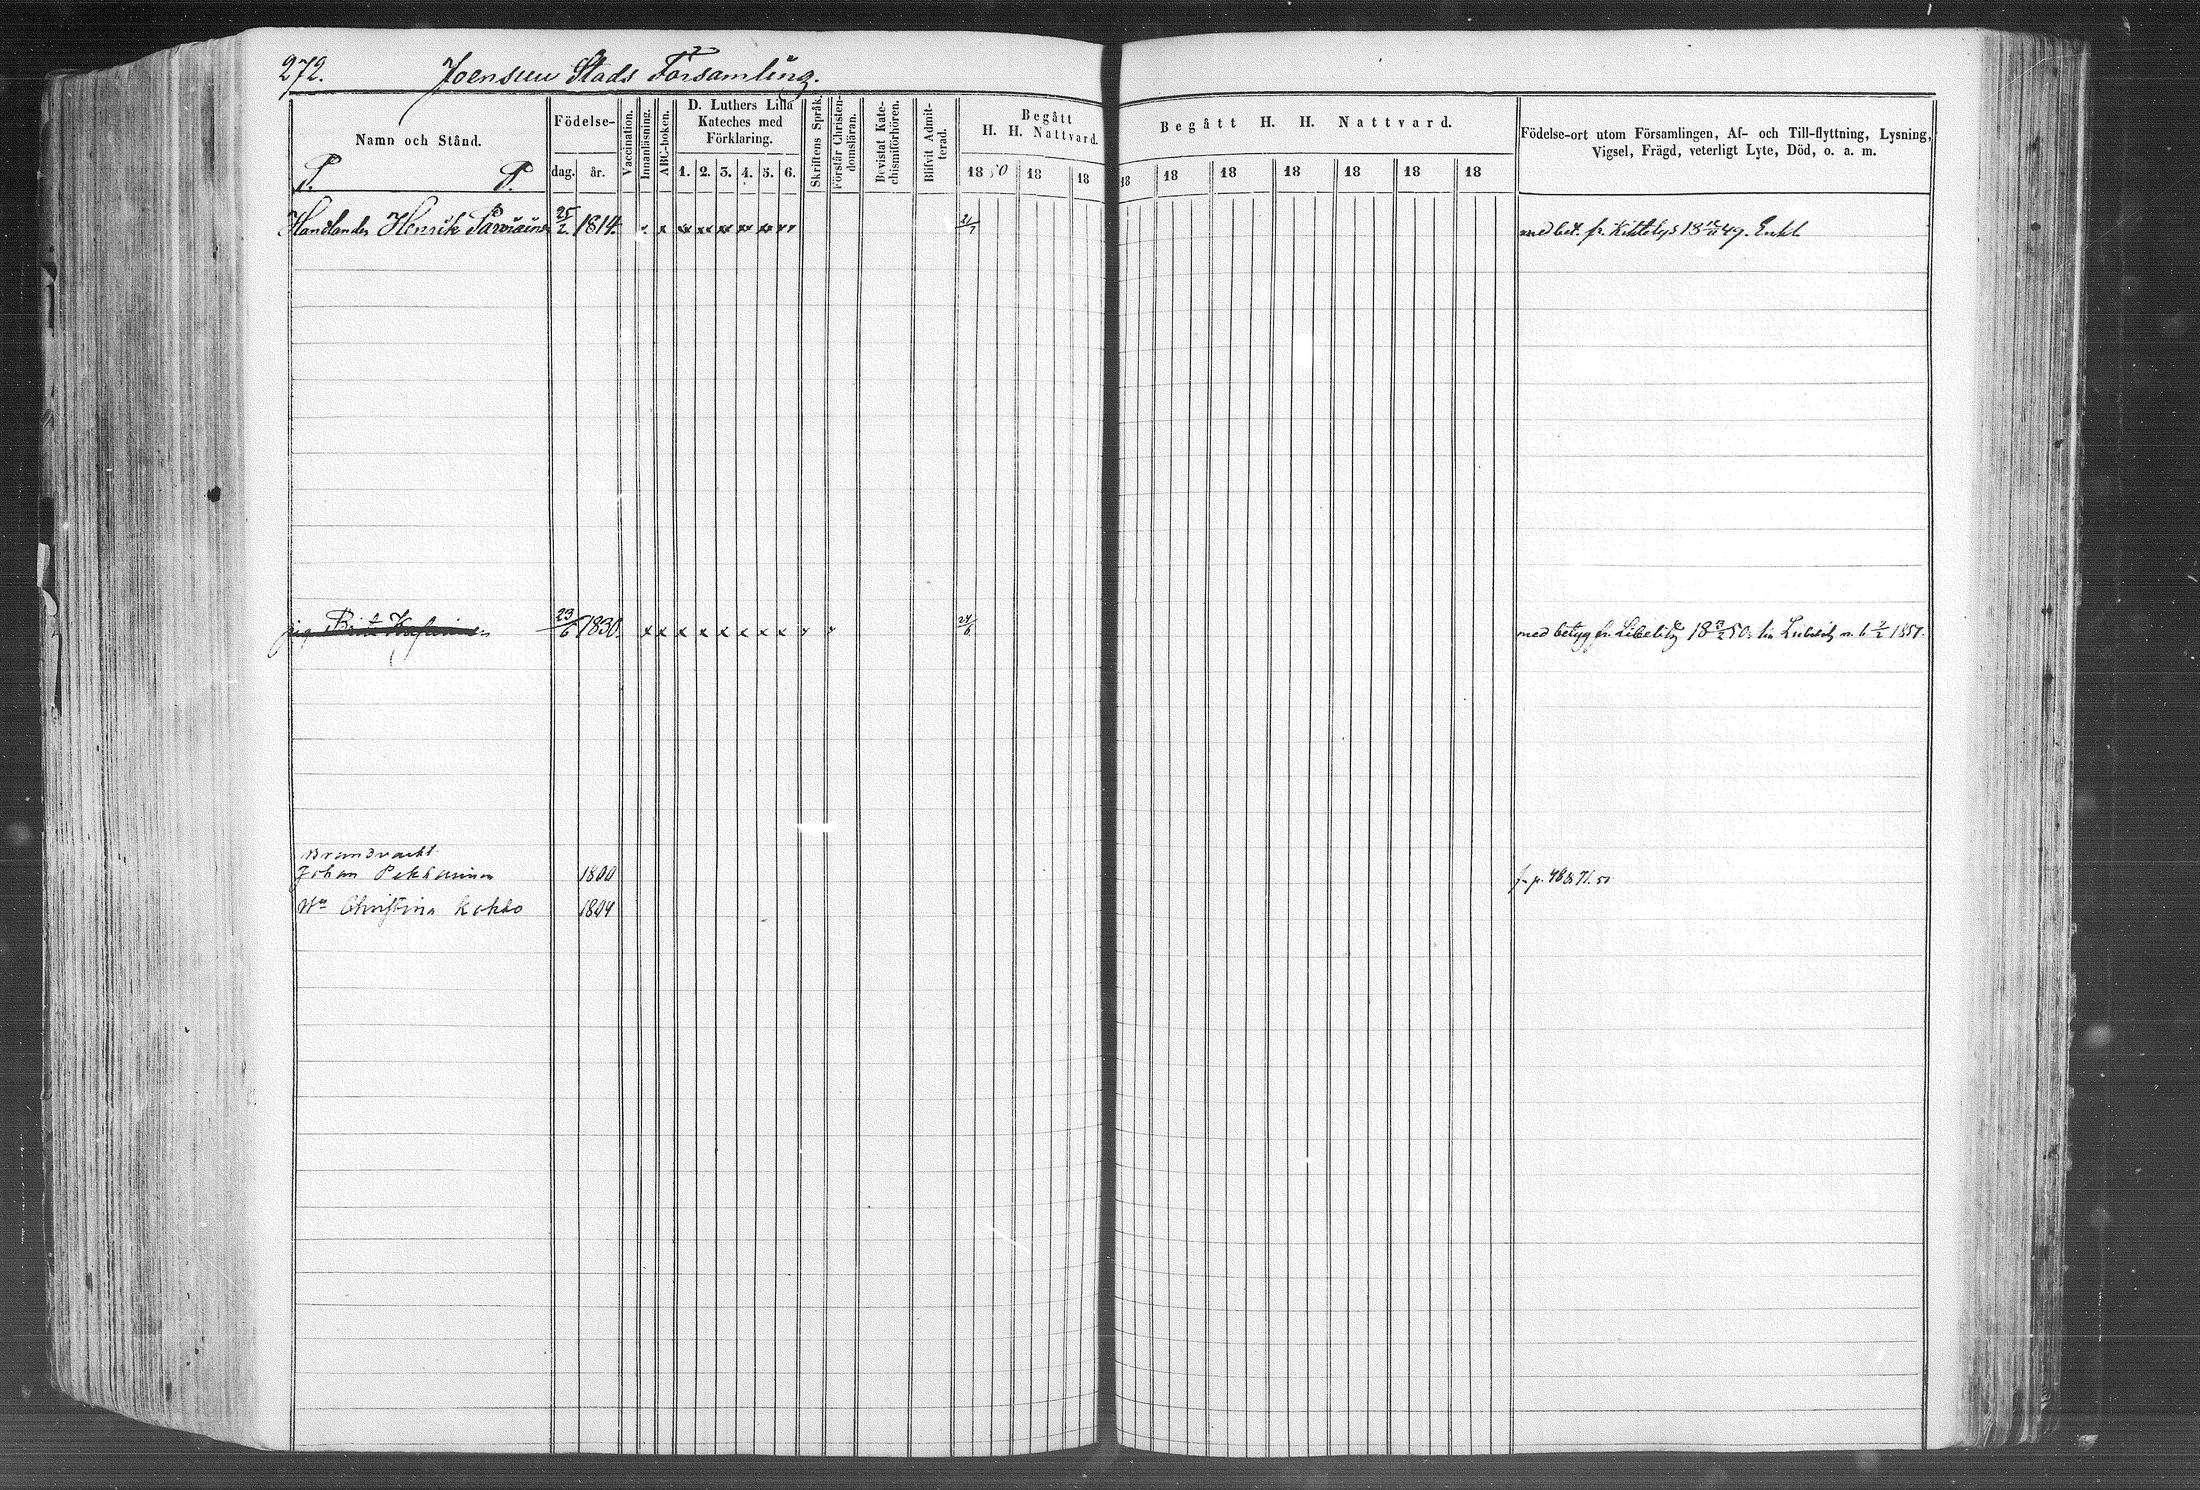 272. Joensuu Stads Församling.
Namn och Stånd. Födelse- dag. år. Vaccination. Innanläsning. ABC-boken. D. Luthers Lilla Kateches med Förklaring. 1. 2. 3. 4. 5. 6. Skriftens Språk. Förstår Christendomsläran. Bevistat Katechismiförhören. Blifvit Admitterad. Begått H. H. Nattvard. 18 50 18 18
Begått H. H. Nattvard. 18 18 18 18 18 18 18
Födelse-ort utom Församlingen, Af- och Till-flyttning, Lysning,
Vigsel, Frägd, veterligt Lyte, Död, o. a. m.
P. P.
Handlanden Henrik Parviainen 25/2 1814. x x xx xx xx xx xx xx med bet. fr. Kittelys 49. Enkl
pig. Brita 23/6 1830. x x x x x x x x x x 24/6 med betyg fr. Libelitz 50. Libelitz 1851.
Brandvakt
Johan Pekkarinen 1800
Hu Christina Kokko 1804